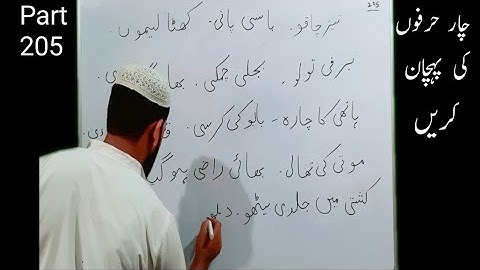 Part
205
چار حرفوں
کی پہچان
کریں
205
تیز چاقو۔ باسی پانی۔ کھٹا لیموں۔
برفی تولو۔ بجلی چمکی۔
ہاتھی کا چارہ۔ بابو کی کرسی۔
موتی کی تھال۔ بھائی راضی ہو گیا
کشتی میں جلدی بیٹھو۔